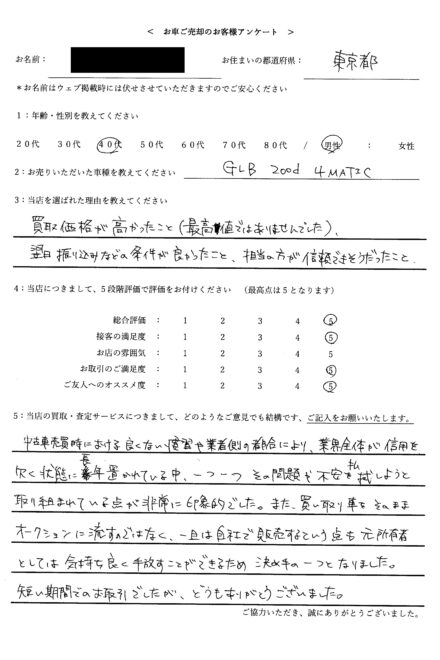 ＜ お車ご売却のお客様アンケート ＞
お名前： お住まいの都道府県： 東京都
＊お名前はウェブ掲載時には伏せさせていただきますのでご安心ください
1：年齢・性別を教えてください
20代 30代 40代 50代 60代 70代 80代 / 男性 ： 女性
2：お売りいただいた車種を教えてください GLB 200d 4MATIC
3：当店を選ばれた理由を教えてください
買取価格が高かったこと(最高値ではありませんでした)、
翌日振り込みなどの条件が良かったこと、担当の方が信頼できそうだったこと
4：当店につきまして、5段階評価で評価をお付けください （最高点は5となります）
総合評価 ： 1 2 3 4 5
接客の満足度 ： 1 2 3 4 5
お店の雰囲気 ： 1 2 3 4 5
お取引のご満足度 ： 1 2 3 4 5
ご友人へのオススメ度 ： 1 2 3 4 5
5：当店の買取・査定サービスにつきまして、どのようなご意見でも結構です、ご記入をお願いいたします。
中古車売買時における良くない慣習や業者側の都合により、業界全体が信用を
欠く状態に長年置かれている中、一つ一つその問題や不安を払拭しようと
取り組まれている点が非常に印象的でした。また、買い取り車をそのまま
オークションに流すのではなく、一旦は自社で販売するという点も元所有者
としては気持ち良く手放すことができるため決め手の一つとなりました。
短い期間でのお取引でしたが、どうもありがとうございました。
ご協力いただき、誠にありがとうございました。